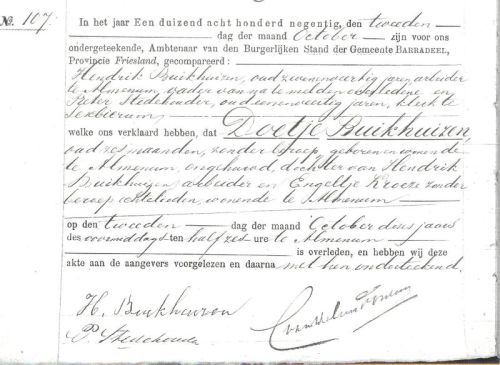 No. 107.
In het jaar Een duizend acht honderd negentig, den tweeden
dag der maand October zijn voor ons
ondergeteekende, Ambtenaar van den Burgerlijken Stand der Gemeente BARRADEEL,
Provincie Friesland, gecompareerd:
Hendrik Buikhuizen, oud zevenenveertig jaren, arbeider
te Almenum, vader van na te melden overledene en
Pieter Stedehouder, oud eenenveertig jaren, klerk te
Sexbierum,
welke ons verklaard hebben, dat Doetje Buikhuizen,
oud zes maanden, zonder beroep, geboren en wonende
te Almenum, ongehuwd, dochter van Hendrik
Buikhuizen, arbeider en Engeltje Kroeze zonder
beroep, echtelieden, wonende te Almenum
op den tweeden dag der maand October dezes jaars
des voormiddags ten half zes ure te Almenum
is overleden, en hebben wij deze
akte aan de aangevers voorgelezen en daarna met hen onderteekend.
H. Buikhuizen
P. Stedehouder